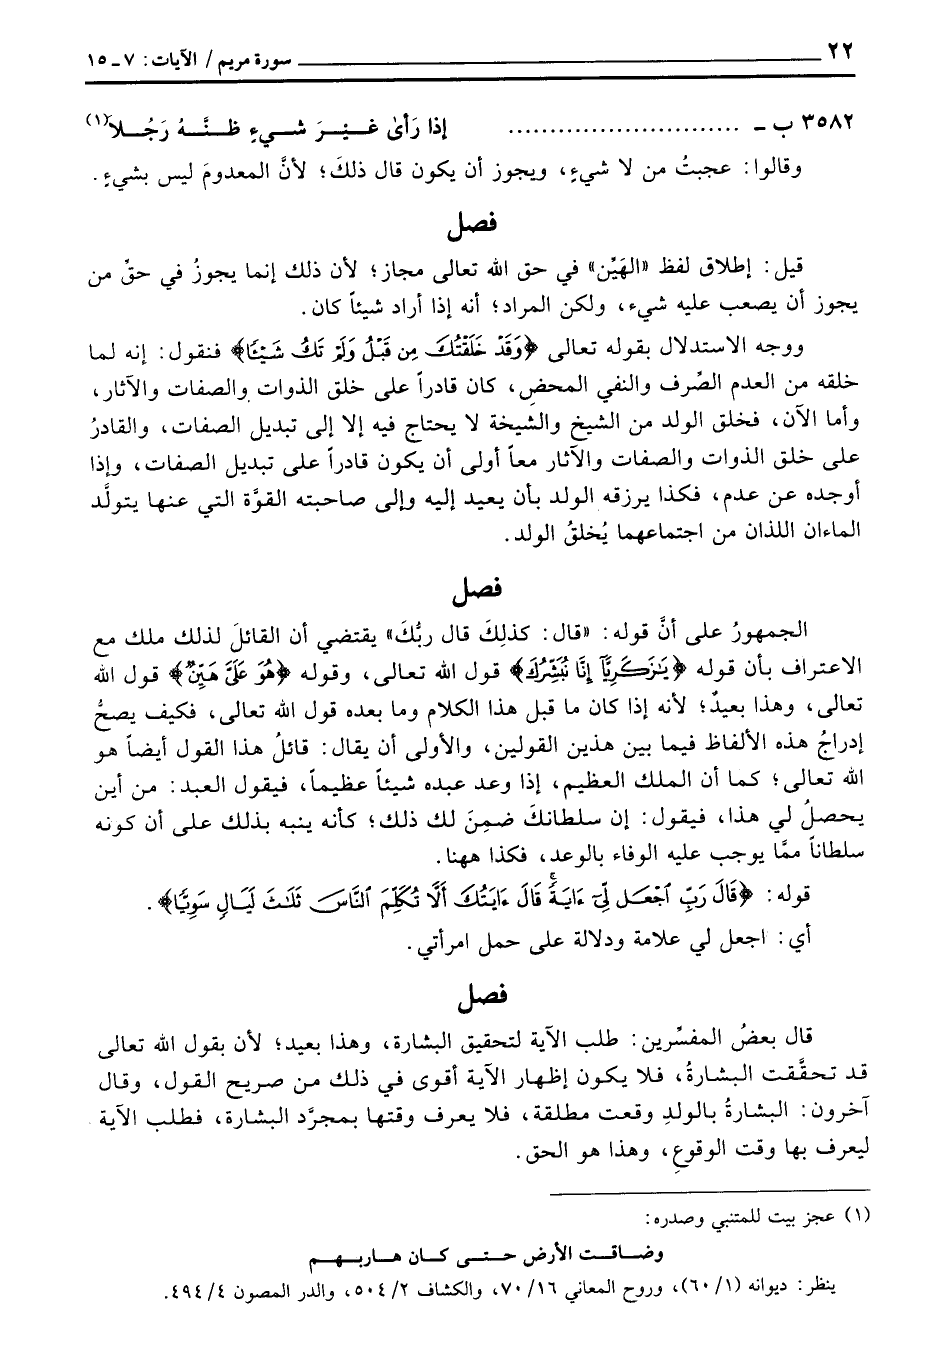 ٢٢ سورة مريم / الآيات: ٧ ـ ١٥
٣٥٨٢ ب ـ ........................... إذا رَأىٰ غَـيْـرَ شـيءٍ ظـنَّـهُ رَجُـلا(١)
وقالوا: عجبتُ من لا شيءٍ، ويجوز أن يكون قال ذلكَ؛ لأنَّ المعدومَ ليس بشيءٍ.
فصل
قيل: إطلاق لفظ «الهَيِّن» في حق الله تعالى مجاز؛ لأن ذلك إنما يجوزُ في حقِّ من
يجوز أن يصعب عليه شيء، ولكن المراد؛ أنه إذا أراد شيئاً كان.
ووجه الاستدلال بقوله تعالى ﴿وَقَدْ خَلَقْتُكَ مِن قَبْلُ وَلَمْ تَكُ شَيْئًا﴾ فنقول: إنه لما
خلقه من العدم الصِّرف والنفي المحضِ، كان قادراً على خلق الذوات والصفات والآثار،
وأما الآن، فخلق الولد من الشيخ والشيخة لا يحتاج فيه إلا إلى تبديل الصفات، والقادرُ
على خلق الذوات والصفات والآثار معاً أولى أن يكون قادراً على تبديل الصفات، وإذا
أوجده عن عدم، فكذا يرزقه الولد بأن يعيد إليه وإلى صاحبته القوَّة التي عنها يتولَّد
الماءان اللذان من اجتماعهما يُخلقُ الولد.
فصل
الجمهورُ على أنَّ قوله: «قال: كذلِكَ قال ربُّكَ» يقتضي أن القائلَ لذلك ملك مع
الاعتراف بأن قوله ﴿يَٰزَكَرِيَّآ إِنَّا نُبَشِّرُكَ﴾ قول الله تعالى، وقوله ﴿هُوَ عَلَىَّ هَيِّنٌ﴾ قول الله
تعالى، وهذا بعيدٌ؛ لأنه إذا كان ما قبل هذا الكلام وما بعده قول الله تعالى، فكيف يصحُّ
إدراجُ هذه الألفاظ فيما بين هذين القولين، والأولى أن يقال: قائلُ هذا القول أيضاً هو
الله تعالى؛ كما أن الملك العظيم، إذا وعد عبده شيئاً عظيماً، فيقول العبد: من أين
يحصلُ لي هذا، فيقول: إن سلطانكَ ضمِنَ لك ذلك؛ كأنه ينبه بذلك على أن كونه
سلطاناً ممَّا يوجب عليه الوفاء بالوعد، فكذا ههنا.
قوله: ﴿قَالَ رَبِّ ٱجْعَل لِّىٓ ءَايَةً قَالَ ءَايَتُكَ أَلَّا تُكَلِّمَ ٱلنَّاسَ ثَلَٰثَ لَيَالٍ سَوِيًّا﴾.
أي: اجعل لي علامة ودلالة على حمل امرأتي.
فصل
قال بعضُ المفسِّرين: طلب الآية لتحقيق البشارة، وهذا بعيد؛ لأن بقول الله تعالى
قد تحقَّقت البشارةُ، فلا يكون إظهار الآية أقوى في ذلك من صريح القول، وقال
آخرون: البشارةُ بالولدِ وقعت مطلقة، فلا يعرف وقتها بمجرَّد البشارة، فطلب الآية
ليعرف بها وقت الوقوعِ، وهذا هو الحق.
(١) عجز بيت للمتنبي وصدره:
وضـاقـت الأرض حـتـى كـان هـاربـهـم
ينظر: ديوانه (٦٠/١)، وروح المعاني ٧٠/١٦، والكشاف ٥٠٤/٢، والدر المصون ٤٩٤/٤.